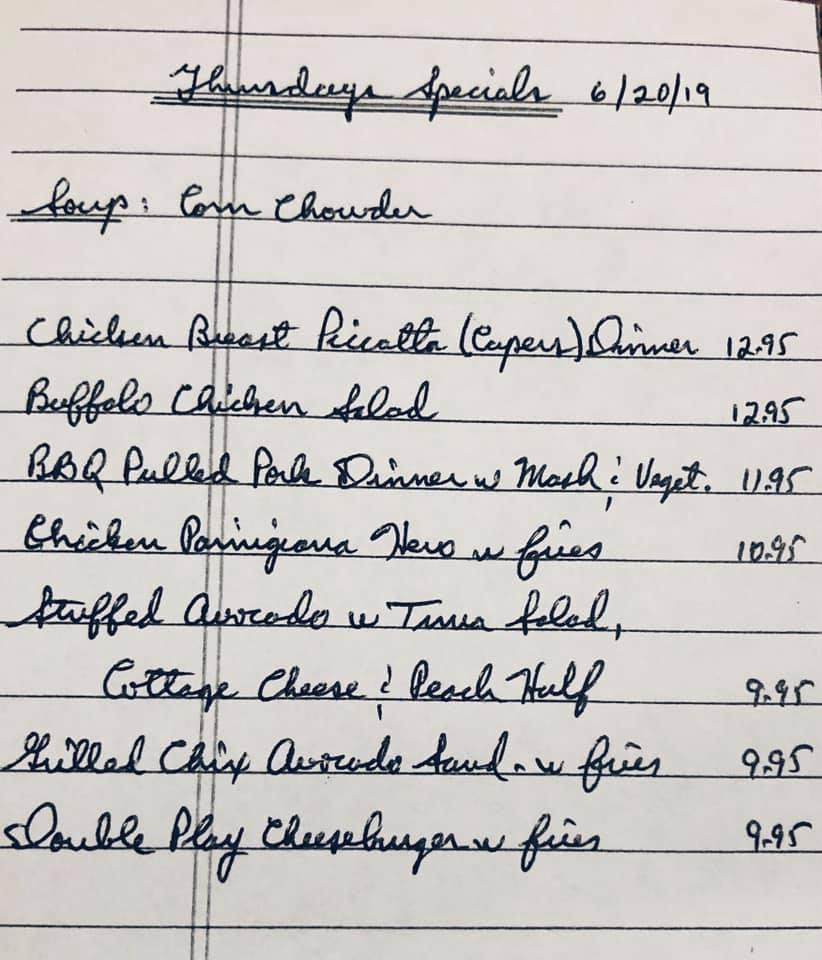 Thursdays Specials 6/20/19
Soup: Corn Chowder
Chicken Breast Piccatta (Capers) Dinner 12.95
Buffalo Chicken Salad 12.95
BBQ Pulled Pork Dinner w Mash & Veget. 11.95
Chicken Parmigiana Hero w fries 10.95
Stuffed Avocado w Tuna Salad,
Cottage Cheese & Peach Half 9.95
Grilled Chix Avocado Sand. w fries 9.95
Double Play Cheeseburger w fries 9.95